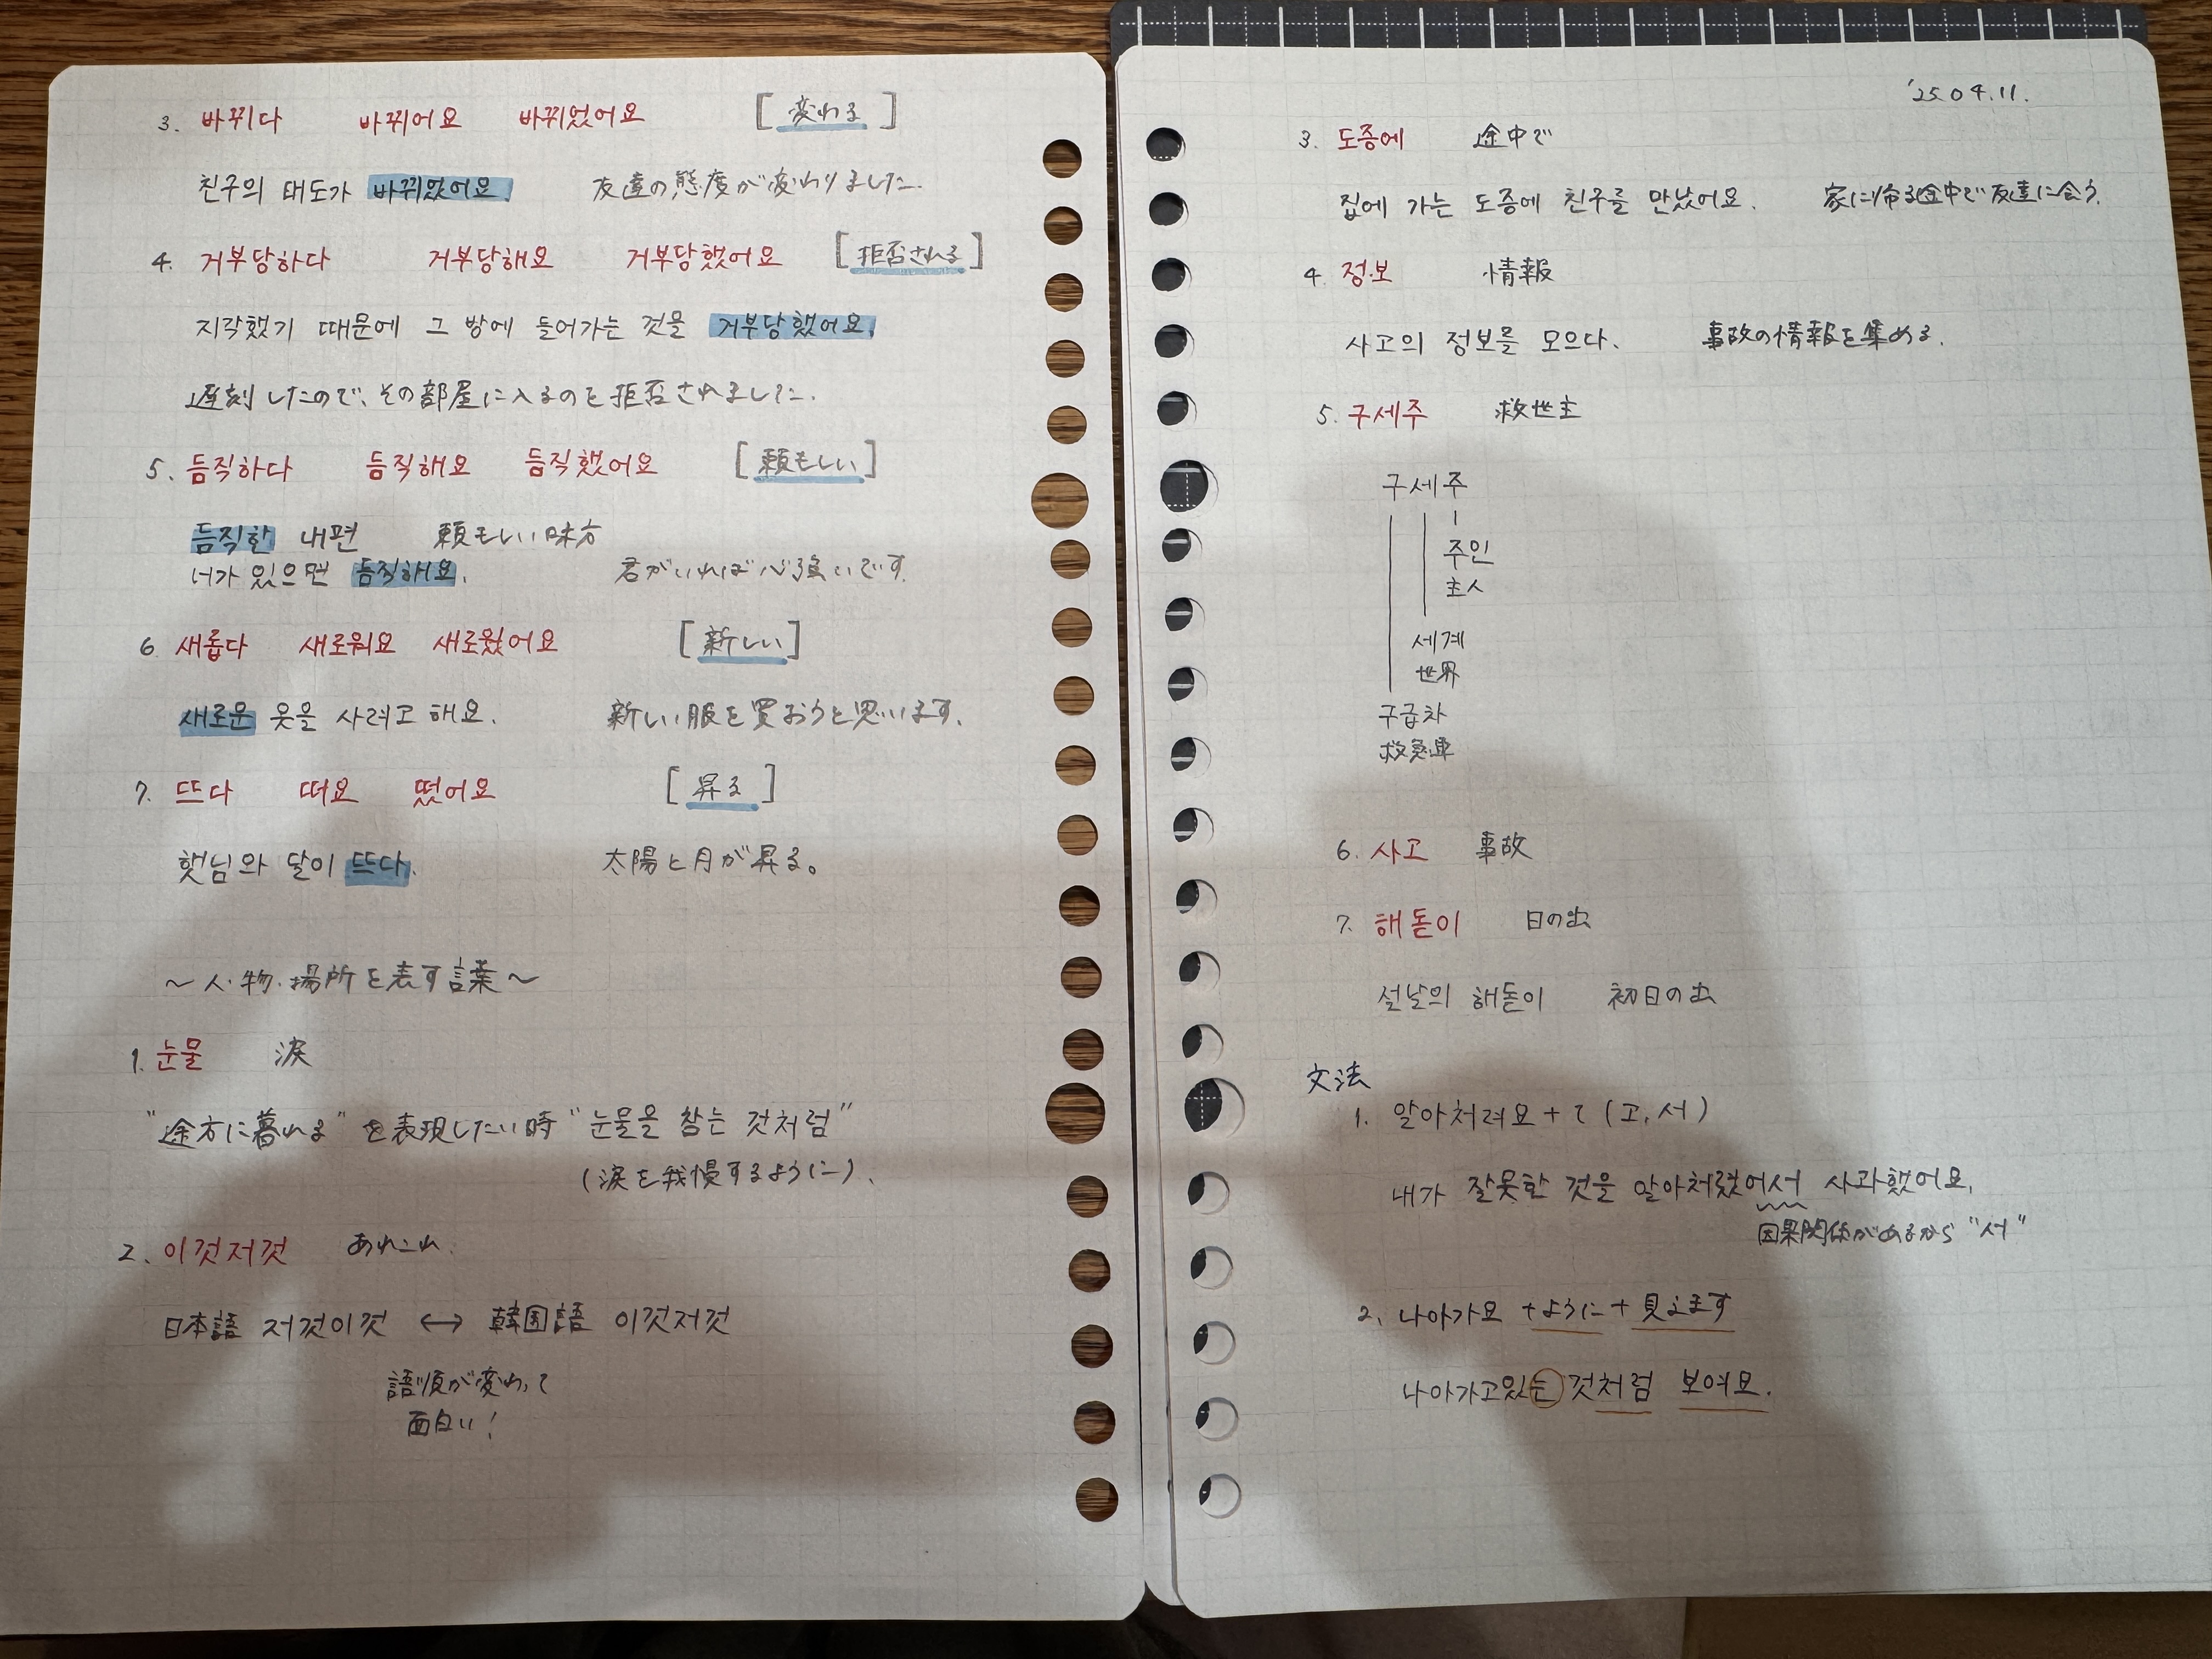 3. 바뀌다 바뀌어요 바뀌었어요 [変わる]
친구의 태도가 바뀌었어요. 友達の態度が変わりました.
4. 거부당하다 거부당해요 거부당했어요 [拒否される]
지각했기 때문에 그 방에 들어가는 것을 거부당했어요.
遅刻したので、その部屋に入るのを拒否されました.
5. 듬직하다 듬직해요 듬직했어요 [頼もしい]
듬직한 내편 頼もしい味方
너가 있으면 듬직해요. 君がいれば心強いです.
6 새롭다 새로워요 새로웠어요 [新しい]
새로운 옷을 사려고 해요. 新しい服を買おうと思います.
7. 뜨다 떠요 떴어요 [昇る]
햇님와 달이 뜨다. 太陽と月が昇る。
〜人・物・場所を表す言葉〜
1. 눈물 涙
"途方に暮れる"を表現したい時 "눈물을 참는 것처럼"
(涙を我慢するように).
2. 이것저것 あれこれ.
日本語 저것이것 ↔ 韓国語 이것저것
語順が変わって
面白い!
'25.04.11.
3. 도중에 途中で
집에 가는 도중에 친구를 만났어요. 家に帰る途中で友達に会う.
4. 정보 情報
사고의 정보를 모으다. 事故の情報を集める.
5. 구세주 救世主
구세주
주인
主人
세계
世界
구급차
救急車
6. 사고 事故
7. 해돋이 日の出
설날의 해돋이 初日の出
文法
1. 알아처려요 + て (고, 서)
내가 잘못한 것을 알아처렸어서 사과했어요.
因果関係があるから "서"
2. 나아가요 +ように+見えます
나아가고있는 것처럼 보여요.